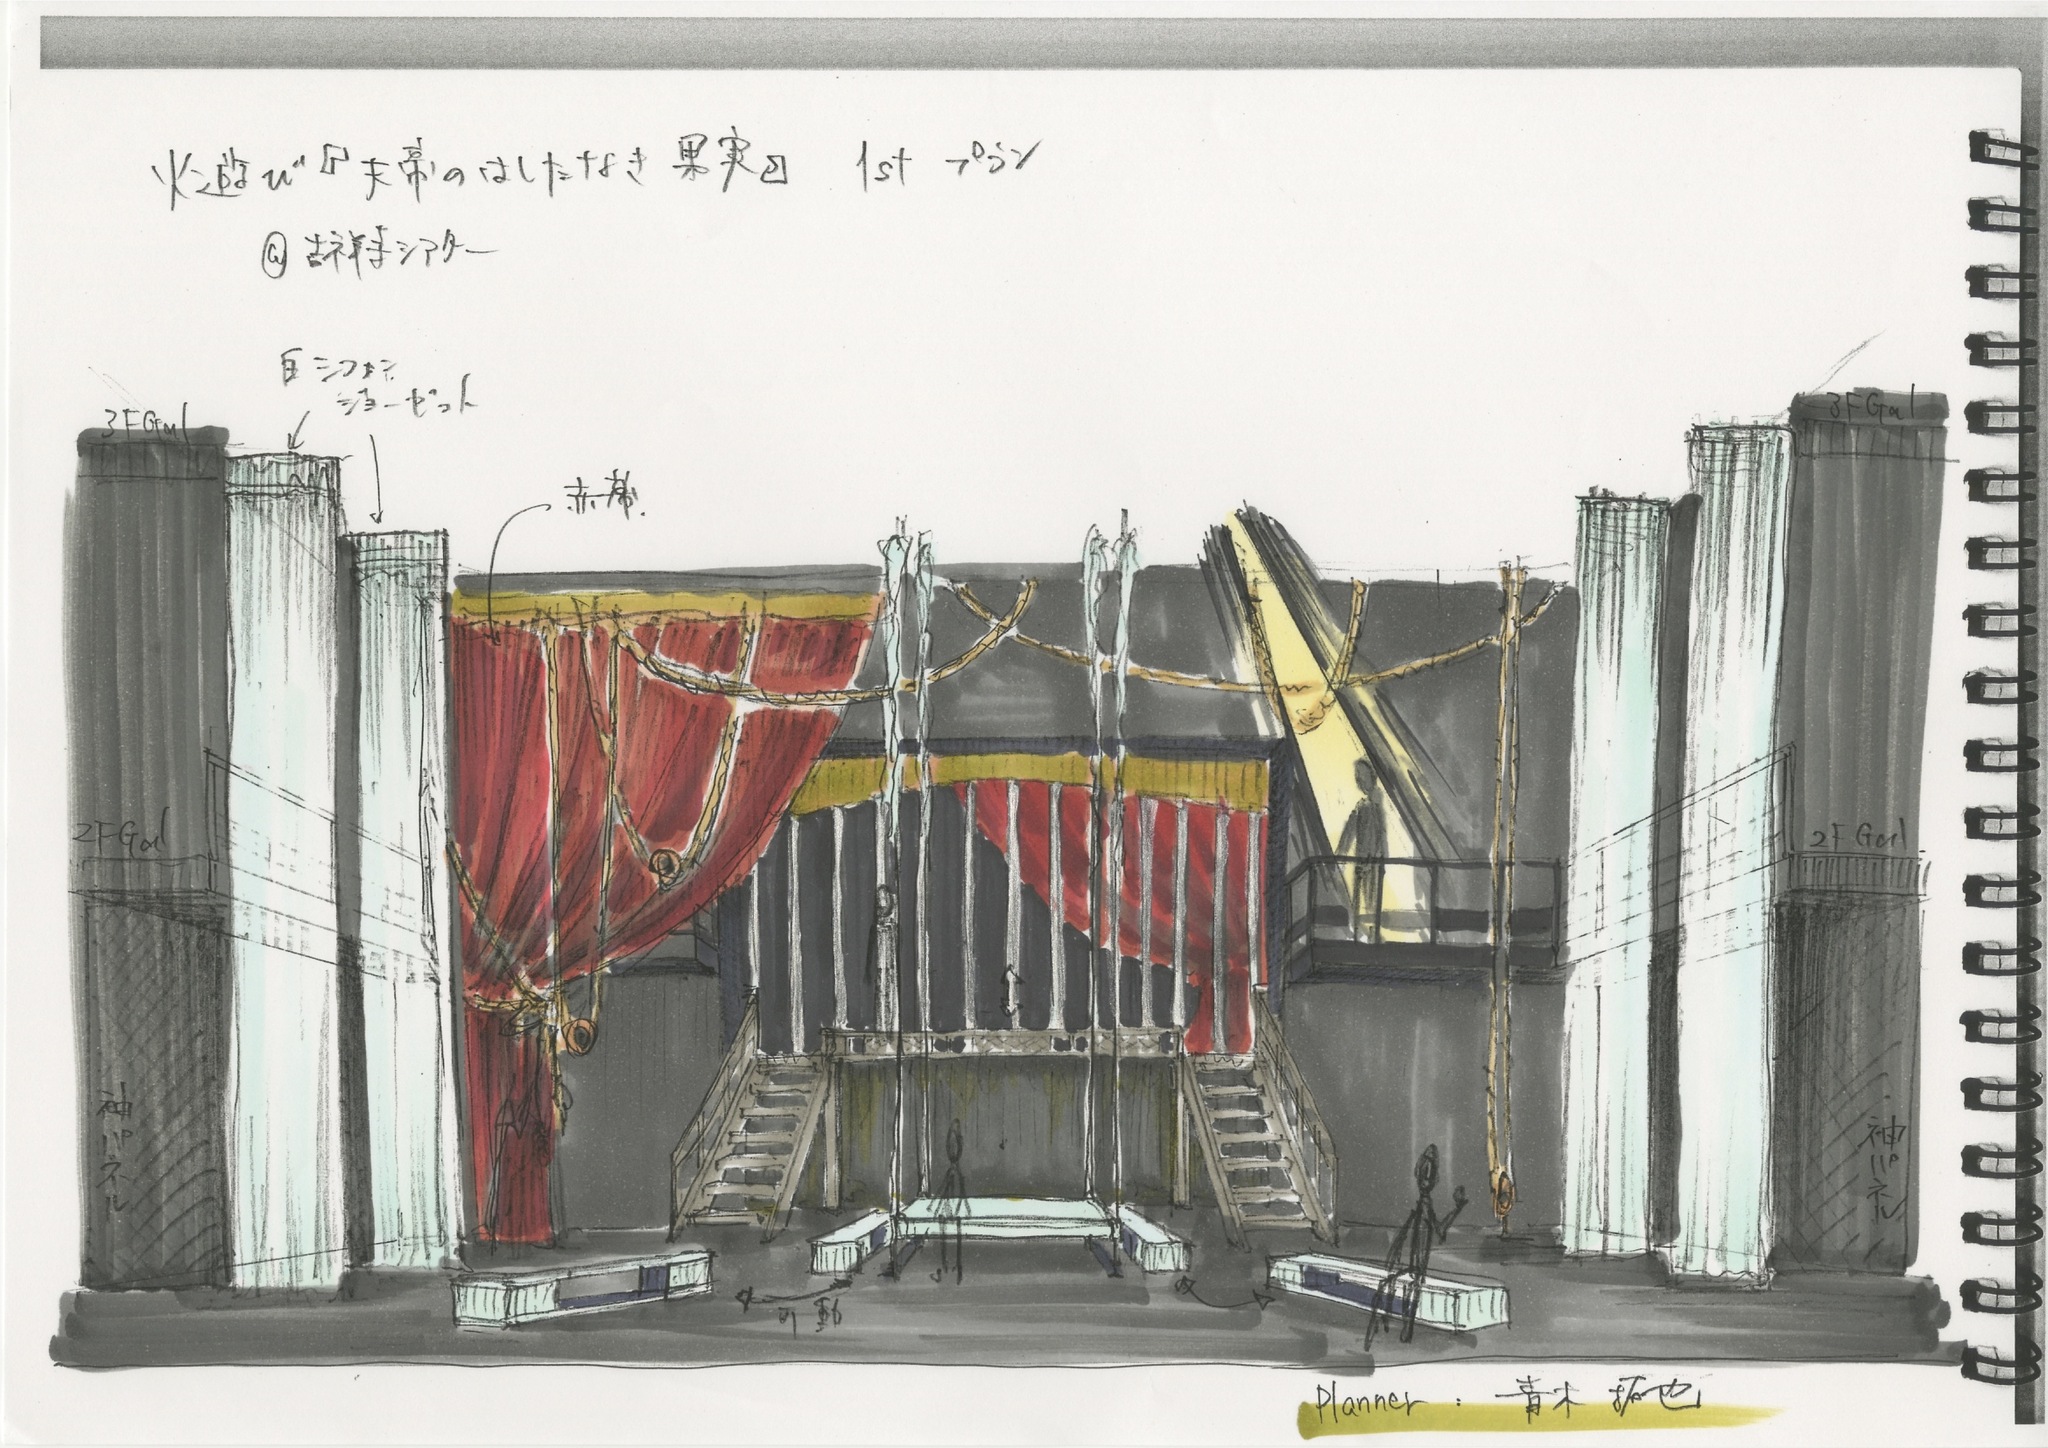 火遊び『天帝のはしたなき果実』 1st プラン
@吉祥寺シアター
白シフォン
ジョーゼット
赤幕
3F Gal
3F Gal
2F Gal
2F Gal
袖パネル
袖パネル
可動
Planner : 青木 拓也